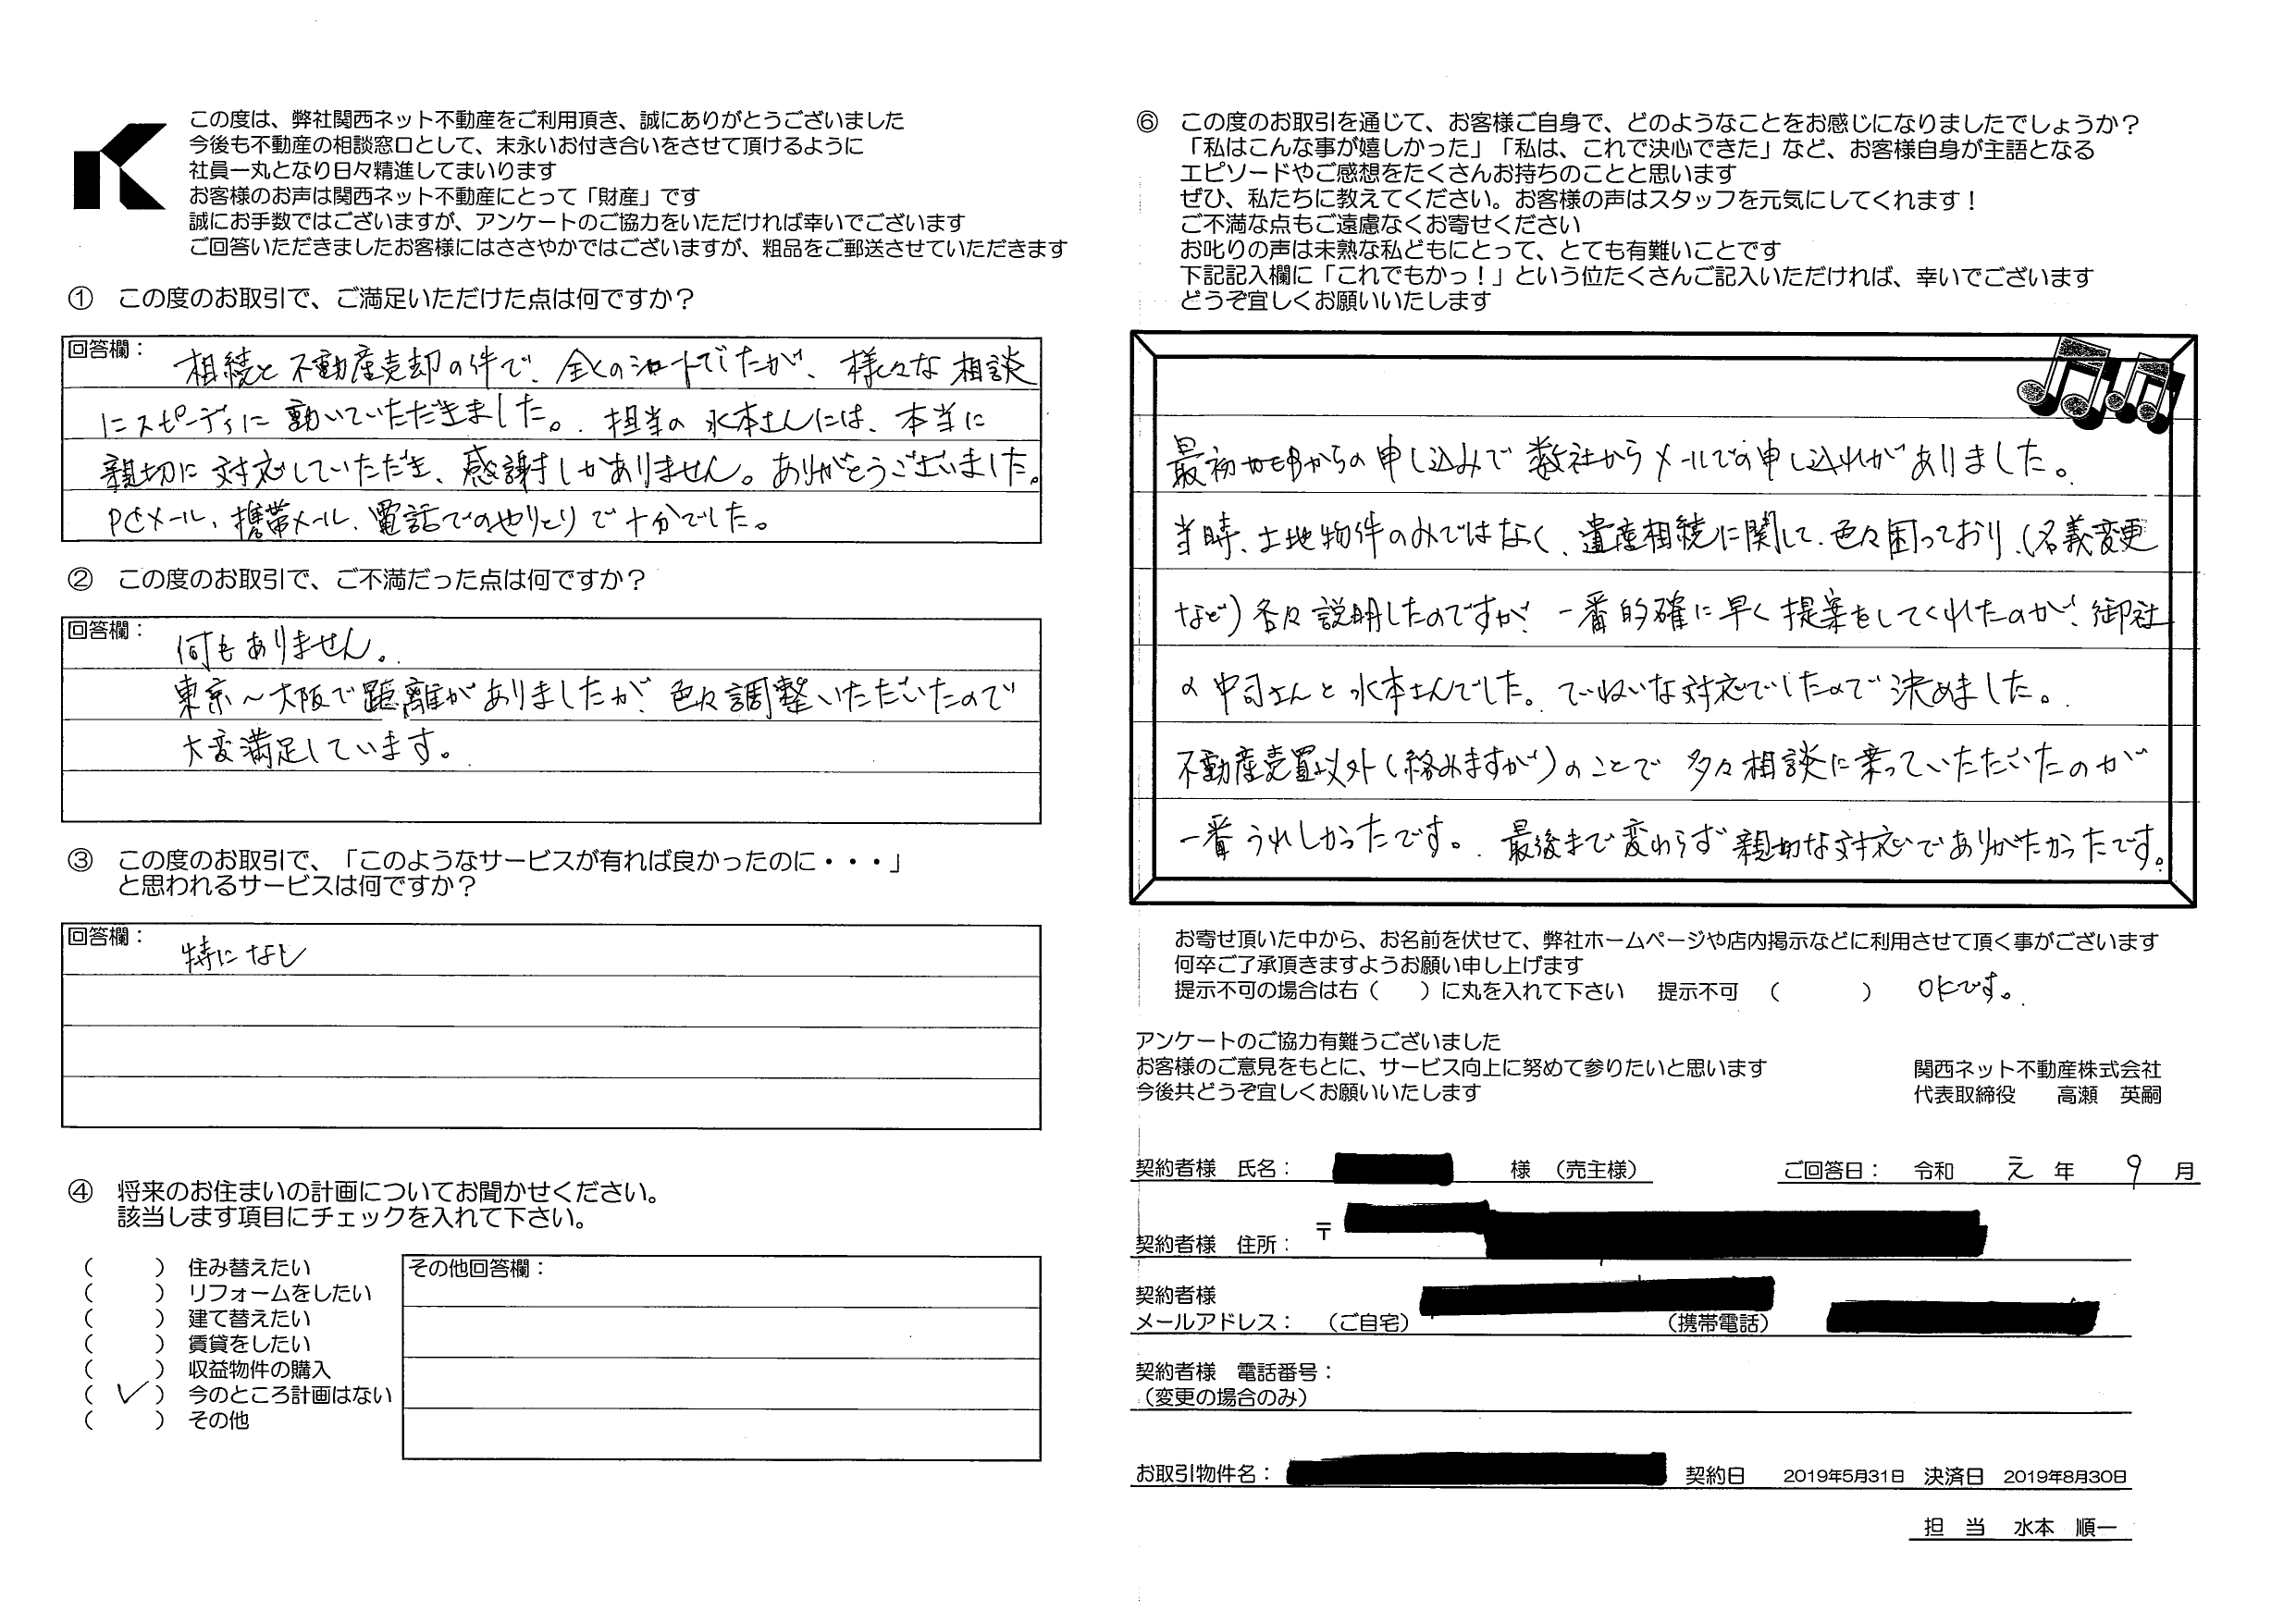 この度は、弊社関西ネット不動産をご利用頂き、誠にありがとうございました
今後も不動産の相談窓口として、末永いお付き合いをさせて頂けるように
社員一丸となり日々精進してまいります
お客様のお声は関西ネット不動産にとって「財産」です
誠にお手数ではございますが、アンケートのご協力をいただければ幸いでございます
ご回答いただきましたお客様にはささやかではございますが、粗品をご郵送させていただきます
① この度のお取引で、ご満足いただけた点は何ですか？
回答欄：
相続と不動産売却の件で、全くのシロートでしたが、様々な相談
にスピーディに動いていただきました。担当の水本さんには、本当に
親切に対応していただき、感謝しかありません。ありがとうございました。
PCメール、携帯メール、電話でのやりとりで十分でした。
② この度のお取引で、ご不満だった点は何ですか？
回答欄：
何もありません。
東京～大阪で距離がありましたが、色々調整いただいたので
大変満足しています。
③ この度のお取引で、「このようなサービスが有れば良かったのに・・・」
と思われるサービスは何ですか？
回答欄：
特になし
④ 将来のお住まいの計画についてお聞かせください。
該当します項目にチェックを入れて下さい。
（　　）住み替えたい
（　　）リフォームをしたい
（　　）建て替えたい
（　　）賃貸をしたい
（　　）収益物件の購入
（ ✓ ）今のところ計画はない
（　　）その他
その他回答欄：
⑥ この度のお取引を通じて、お客様ご自身で、どのようなことをお感じになりましたでしょうか？
「私はこんな事が嬉しかった」「私は、これで決心できた」など、お客様自身が主語となる
エピソードやご感想をたくさんお持ちのことと思います
ぜひ、私たちに教えてください。お客様の声はスタッフを元気にしてくれます！
ご不満な点もご遠慮なくお寄せください
お叱りの声は未熟な私どもにとって、とても有難いことです
下記記入欄に「これでもかっ！」という位たくさんご記入いただければ、幸いでございます
どうぞ宜しくお願いいたします
最初 からの申し込みで数社からメールでの申し込れがありました。
当時、土地物件のみではなく、遺産相続に関して、色々困っており、（名義変更
など）各々説明したのですが、一番的確に早く提案をしてくれたのが、御社
の中司さんと水本さんでした。ていねいな対応でしたので決めました。
不動産売買以外（絡みますが）のことで多々相談に乗っていただいたのが
一番うれしかったです。最後まで変わらず親切な対応でありがたかったです。
お寄せ頂いた中から、お名前を伏せて、弊社ホームページや店内掲示などに利用させて頂く事がございます
何卒ご了承頂きますようお願い申し上げます
提示不可の場合は右（　　）に丸を入れて下さい　提示不可　（　　　　）　OKです。
アンケートのご協力有難うございました
お客様のご意見をもとに、サービス向上に努めて参りたいと思います
今後共どうぞ宜しくお願いいたします
関西ネット不動産株式会社
代表取締役　高瀬　英嗣
契約者様　氏名：　様　（売主様）　ご回答日：　令和　元　年　9　月
契約者様　住所：　〒
契約者様
メールアドレス：　（ご自宅）　（携帯電話）
契約者様　電話番号：
（変更の場合のみ）
お取引物件名：　契約日　2019年5月31日　決済日　2019年8月30日
担　当　水本　順一